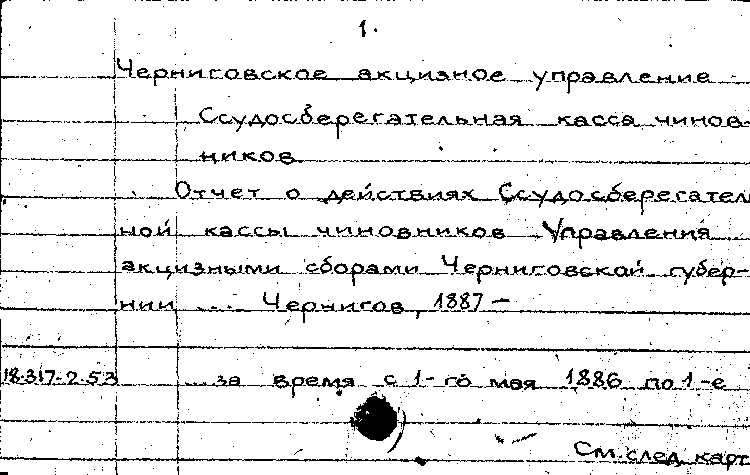 1.
Черниговское акцизное управление
Ссудосберегательная касса чинов-
ников.
Отчет о действиях Ссудосберегатель
ной кассы чиновников Управления
акцизными сборами Черниговской губер-
нии .... Чернигов, 1887 –
18.317.2.53 ... за время с 1-го мая 1886 по 1-е
См. след. карт